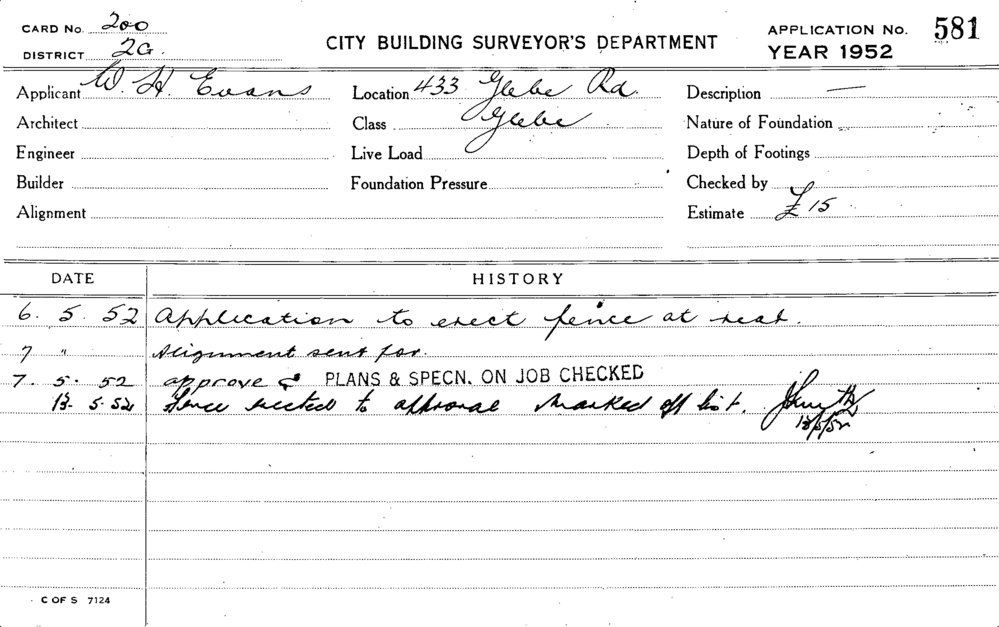 CARD No. 200
DISTRICT 2G.
CITY BUILDING SURVEYOR'S DEPARTMENT
APPLICATION No. 581
YEAR 1952
Applicant W. H. Evans
Location 433 Glebe Rd.
Description —
Architect
Class Glebe
Nature of Foundation
Engineer
Live Load
Depth of Footings
Builder
Foundation Pressure
Checked by
Alignment
Estimate £15
DATE HISTORY
6. 5. 52 Application to erect fence at rear.
7 " Alignment sent for.
7. 5. 52 approve PLANS & SPECN. ON JOB CHECKED
13. 5. 52 Fence erected to approval Marked off list.
C OF S 7124